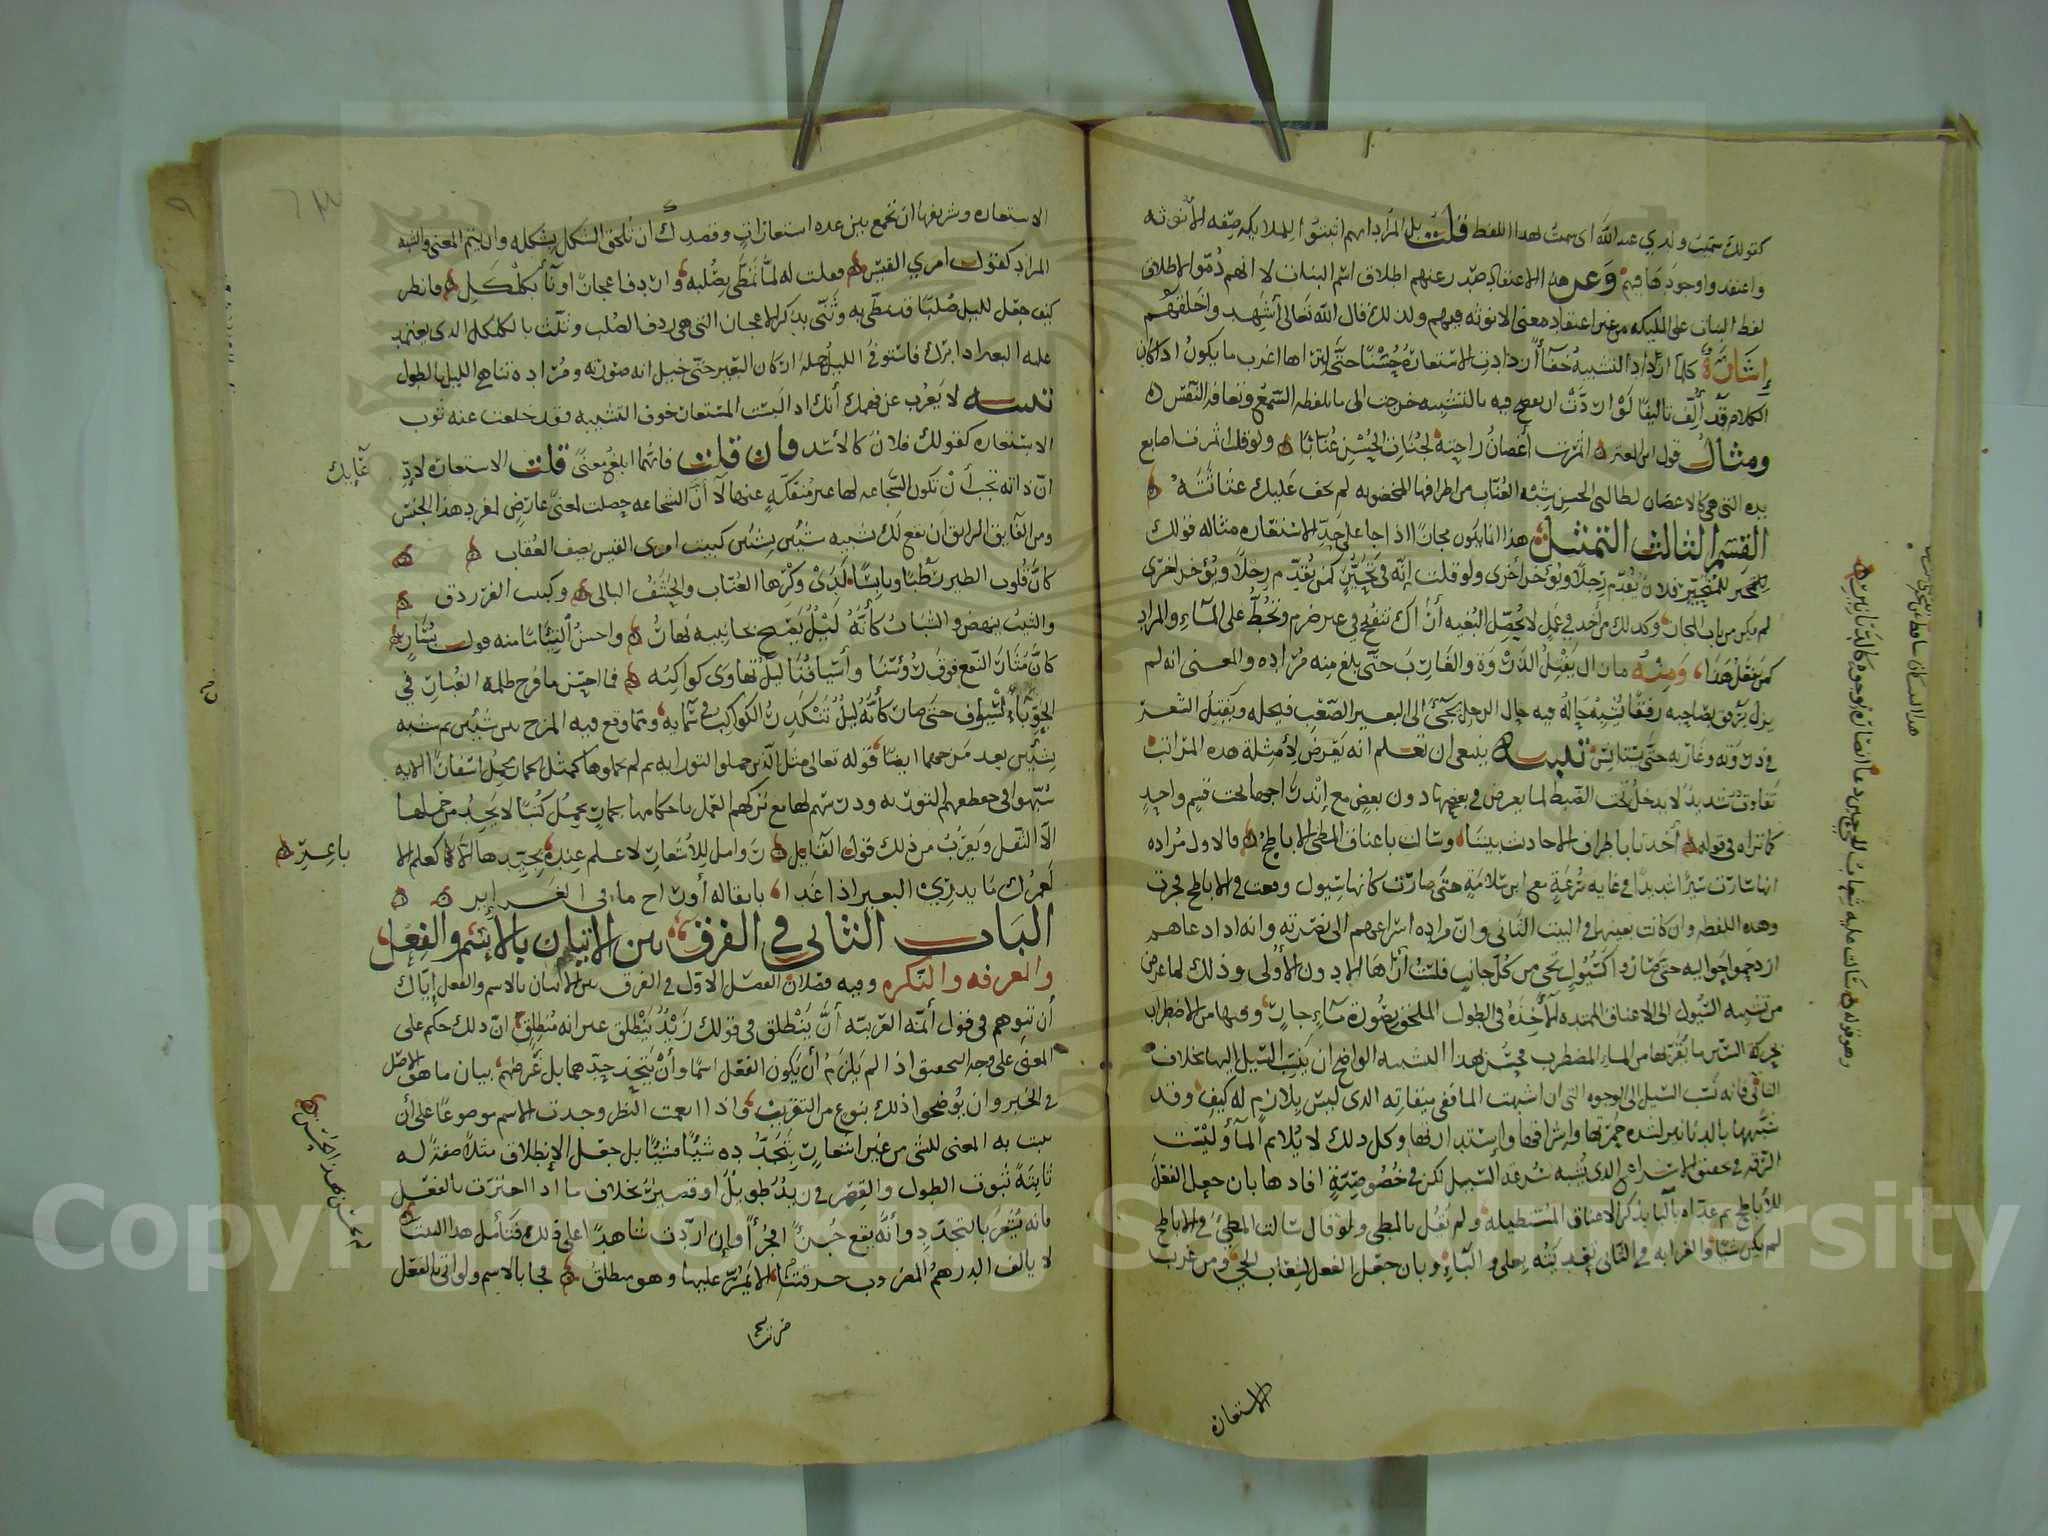 كقولك سميت ولدي عبد الله اى سميته بهذا اللفظ قلت بل المراد انهم اثبتوا للملايكه صفه الأنوثه
واعتقدوا وجودها فيهم وعن هذا الاعتقاد صدر عنهم اطلاق اسم البنات لا انهم ذموا لاطلاق
لفظ البنات على المليكه من غير اعتقاد معنى الانوثه فيهم ولذلك قال الله تعالى أشهدوا خلقهم
إشارة كلما ازداد التشبيه خفاءً ازدادت الاستعارة حُسْنًا حتى انك تراها اغرب ما يكون اذا كان
الكلام قد أُلّف تاليفًا لو اردت ان تفصح فيه بالتشبيه خرجت الى ما تلفظه السمع وتعافه النفس
ومثال قول ابن المعتز اثمرت أغصان راحته لجُنَاة الحُسْن عُنّابًا ولو قلت اثمرت اصابع
يده التي هي كالاغصان لطالبى الحسن شِبْه العُنّاب من اطرافها المخضوبه لم يخف عليك غثاثته
القسم الثالث التمثيل هذا انما يكون مجازًا اذا جا على حدّ الاستعاره مثاله قولك
للمتحير فلان يُقدّم رِجلًا ويُؤخر اخرى ولو قلت إنّه في تَحَيُّرِهِ كمن يُقدّم رِجلًا ويُؤخر اخرى
لم يكن من باب المجاز وكذلك من أخذ في عمل لا يُحصّل البُغيه أنا أراك تنفُخ في غير ضرم وتَخُطّ على الماء والمراد
كمن يفعل هذا، ومنه ما زال يَفْتِلُ الذروة والغارب حتى بلغ منه مراده والمعنى انه لم
يزل يرفق بصاحبه رفقًا يُشبه حالُهُ فيه حال الرجل يجىء الى البعير الصَّعْب فيحكه ويَفتِلُ الشعر
في ذروته وغاربه حتى يستانس تنبيه ينبغى ان تعلم انه يَعْرِض لأمثلة هذه المراتب
تفاوت شديد لا يدخل تحت الضبط لما يعرض في بعضها دون بعض مع اندراجهما تحت قسم واحدٍ
كما تراه في قوله أخذنا باطراف الاحاديث بيننا وسالت باعناق المطى الاباطح فالاول مُراده
انها سارت سيرًا شديدًا في غايه سُرعةٍ مع لين سلامةٍ حتى صارت كانها سيول وقعت في الاباطح فجرت
وهذه اللفظه وان كانت بعينها في البيت الثاني وانّ مراده اسراعهم الى نصرته وانه اذا دعاهم
ازدحموا حواليه حتى صاروا كسيولٍ تجى من كل جانب قلتُ أثرها الا دون الأُولى وذلك لما عرض
من تشبيه السيول الى الاعناق الممتده الآخذه في الطول الملحق بصُورة ماءٍ جارٍ وفيها من الاضطراب
بحركة السَّير ما يُقرّبها من الماء المضطرب فحسُن لهذا الشبه الواضح ان يَنْسِب السَّيل اليها بخلاف
الثاني فانه نَسَب السَّيل الى الوجوه التى ان اشبهت الما ففى صفاته الذى ليس بلازم له كيف وقد
شبّهها بالدنانير لشده حُمرتها واشراقها واستدارتها وكل ذلك لا يُلايم المآ وليست
الدقه في معنى الاسراع الذى يُشبه سُرعة السَّيل لكن في خُصوصيةٍ افادها بان جعل الفعل
للأباطح ثم عدّاه بالبا بذكر الاعناق المُستطيله ولم يَقُل بالمطى ولو قال سالت المطىُّ في الاباطح
لم يكن شيًا والغرابه في الثاني تعديته بعلى والبآء وبان جعل الفعل لشعاب الحيّ ومن غريب
الاستعاره
وهو قوله سالت عليه شعاب الحي حين دعا انصاره بوجوه كالدنانير
الاستعاره وشريفها ان تجمع بين عده استعاراتٍ وقصدك أن تُلحق الشكل بشكله وان يتم المعنى والشبه
المراد كقول امرئ القيس فقلت له لمّا تَمَطّى بصُلبه وأردف اعجازًا وناء بكَلْكَلِ فانظر
كيف جعل لليل صُلبًا قد تمطّى به وثنّى بذكر الاعجاز التي هي ردف الصُلب وثلّث بالكلكل الذى يعتمد
عليه البعير اذا برك فاستوفى الليل جملة اركان البعير حتى خيل انه صورته ومراده تناهى الليل بالطول
تنبيه لا يَعْزُب عن فهمك أنك اذا لبست المستعار خوف التشبيه فقد خلعت عنه ثوب
الاستعاره كقولك فلان كالأسد فان قلت فايُّهما ابلغ معنًى قلت الاستعاره اذِ
غايتك
انّ ذاته تجب أنْ تكون الشجاعه لها غير مُنفكّةٍ عنها لا أنّ الشجاعه حصلت لمعنًى عارضٍ لفرد هذا الجنس
ومن الفايق الرايق ان يقع لك تشبيه شيئين بشيئين كبيت امرى القيس يصف العُقاب
كأنّ قلوب الطير رطْبًا ويابسًا لَدَى وكْرِها العُنّاب والحَشَفُ البالى وكبيت الفرزدق
والشيب ينهض في الشباب كأنّهُ لَيْلٌ يَصيح بجانبيه نهارُ واحسن ٱلتئامًا منه قول بشّارٍ
كانّ مُثارَ النقع فوق رؤُسنا وأسيافَنا ليلٌ تهاوى كواكبُه فما احسن ما فرج ظلمة الغُبار في
الجوّ بأسْيُوف حتى صارت كأنّهُ ليلٌ تنكَدِرُ الكواكب في سمايه ومما وقع فيه المزج بين شيئين ثم شبه
بشيئين بعد مزجهما ايضا قوله تعالى مثل الذين حملوا التوراه ثم لم يحملوها كمثل الحمار يحمل اسفارًا الايه
شُبّهوا في حفظهم التوريه ودرسهم لها مع تركهم العمل باحكامها بحمارٍ يَحمِلُ كُتُبًا لا يجدُ من حملها
الّا الثقل ويَقرُبُ من ذلك قول القايل زَوامل للأشعار لا علم عندهم بجيّدها الّا كعلم الا
باعِرِ
لعمرُك ما يدري البعير اذا غَدا باثقاله أو راح ما في الغراير
الباب الثاني في الفرق بين الاتيان بالاسم والفعل
والمعرفه والنكره وفيه فصلان الفصل الاوّل في الفرق بين الاتيان بالاسم والفعل إيّاك
أن تتوهم في قول أئمّه العربيّه أنّ يَنْطلق في قولك زَيْدٌ يَنْطَلق عبر انه مُنطلِقٌ انّ ذلك حكم على
المعنى على وجه التحقيق اذ لم يَلزم أن يكون الفعل اسمًا وأن يتّحد حدّهما بل غَرَضهم بيان ما هو الاصل
في الخبر وان يُوضحوا ذلك بنوع من التقريب واذا انعمت النظر وجدت الاسم موضوعًا على أن
يثبت به المعنى للشى من غير اشعارٍ بتجدّده شيئًا فشيئًا بل جعل الانطلاق مثلا صفةً له
ثابتةً ثبوت الطول والقصر في زيدٌ طويلٌ او قصيرٌ بخلاف ما اذا اخبرت بالفعل
فانه يُشعر بالتجدّدِ وأنّه يقع جُزءًا فجُزءًا وإن اردت شاهدًا على ذلك فتأمل هذا البيت
لا يالف الدرهمُ المضروب خرقتنا الا يَمُرُّ عليها وهو منطلقُ فجا بالاسم ولو اتى بالفعل